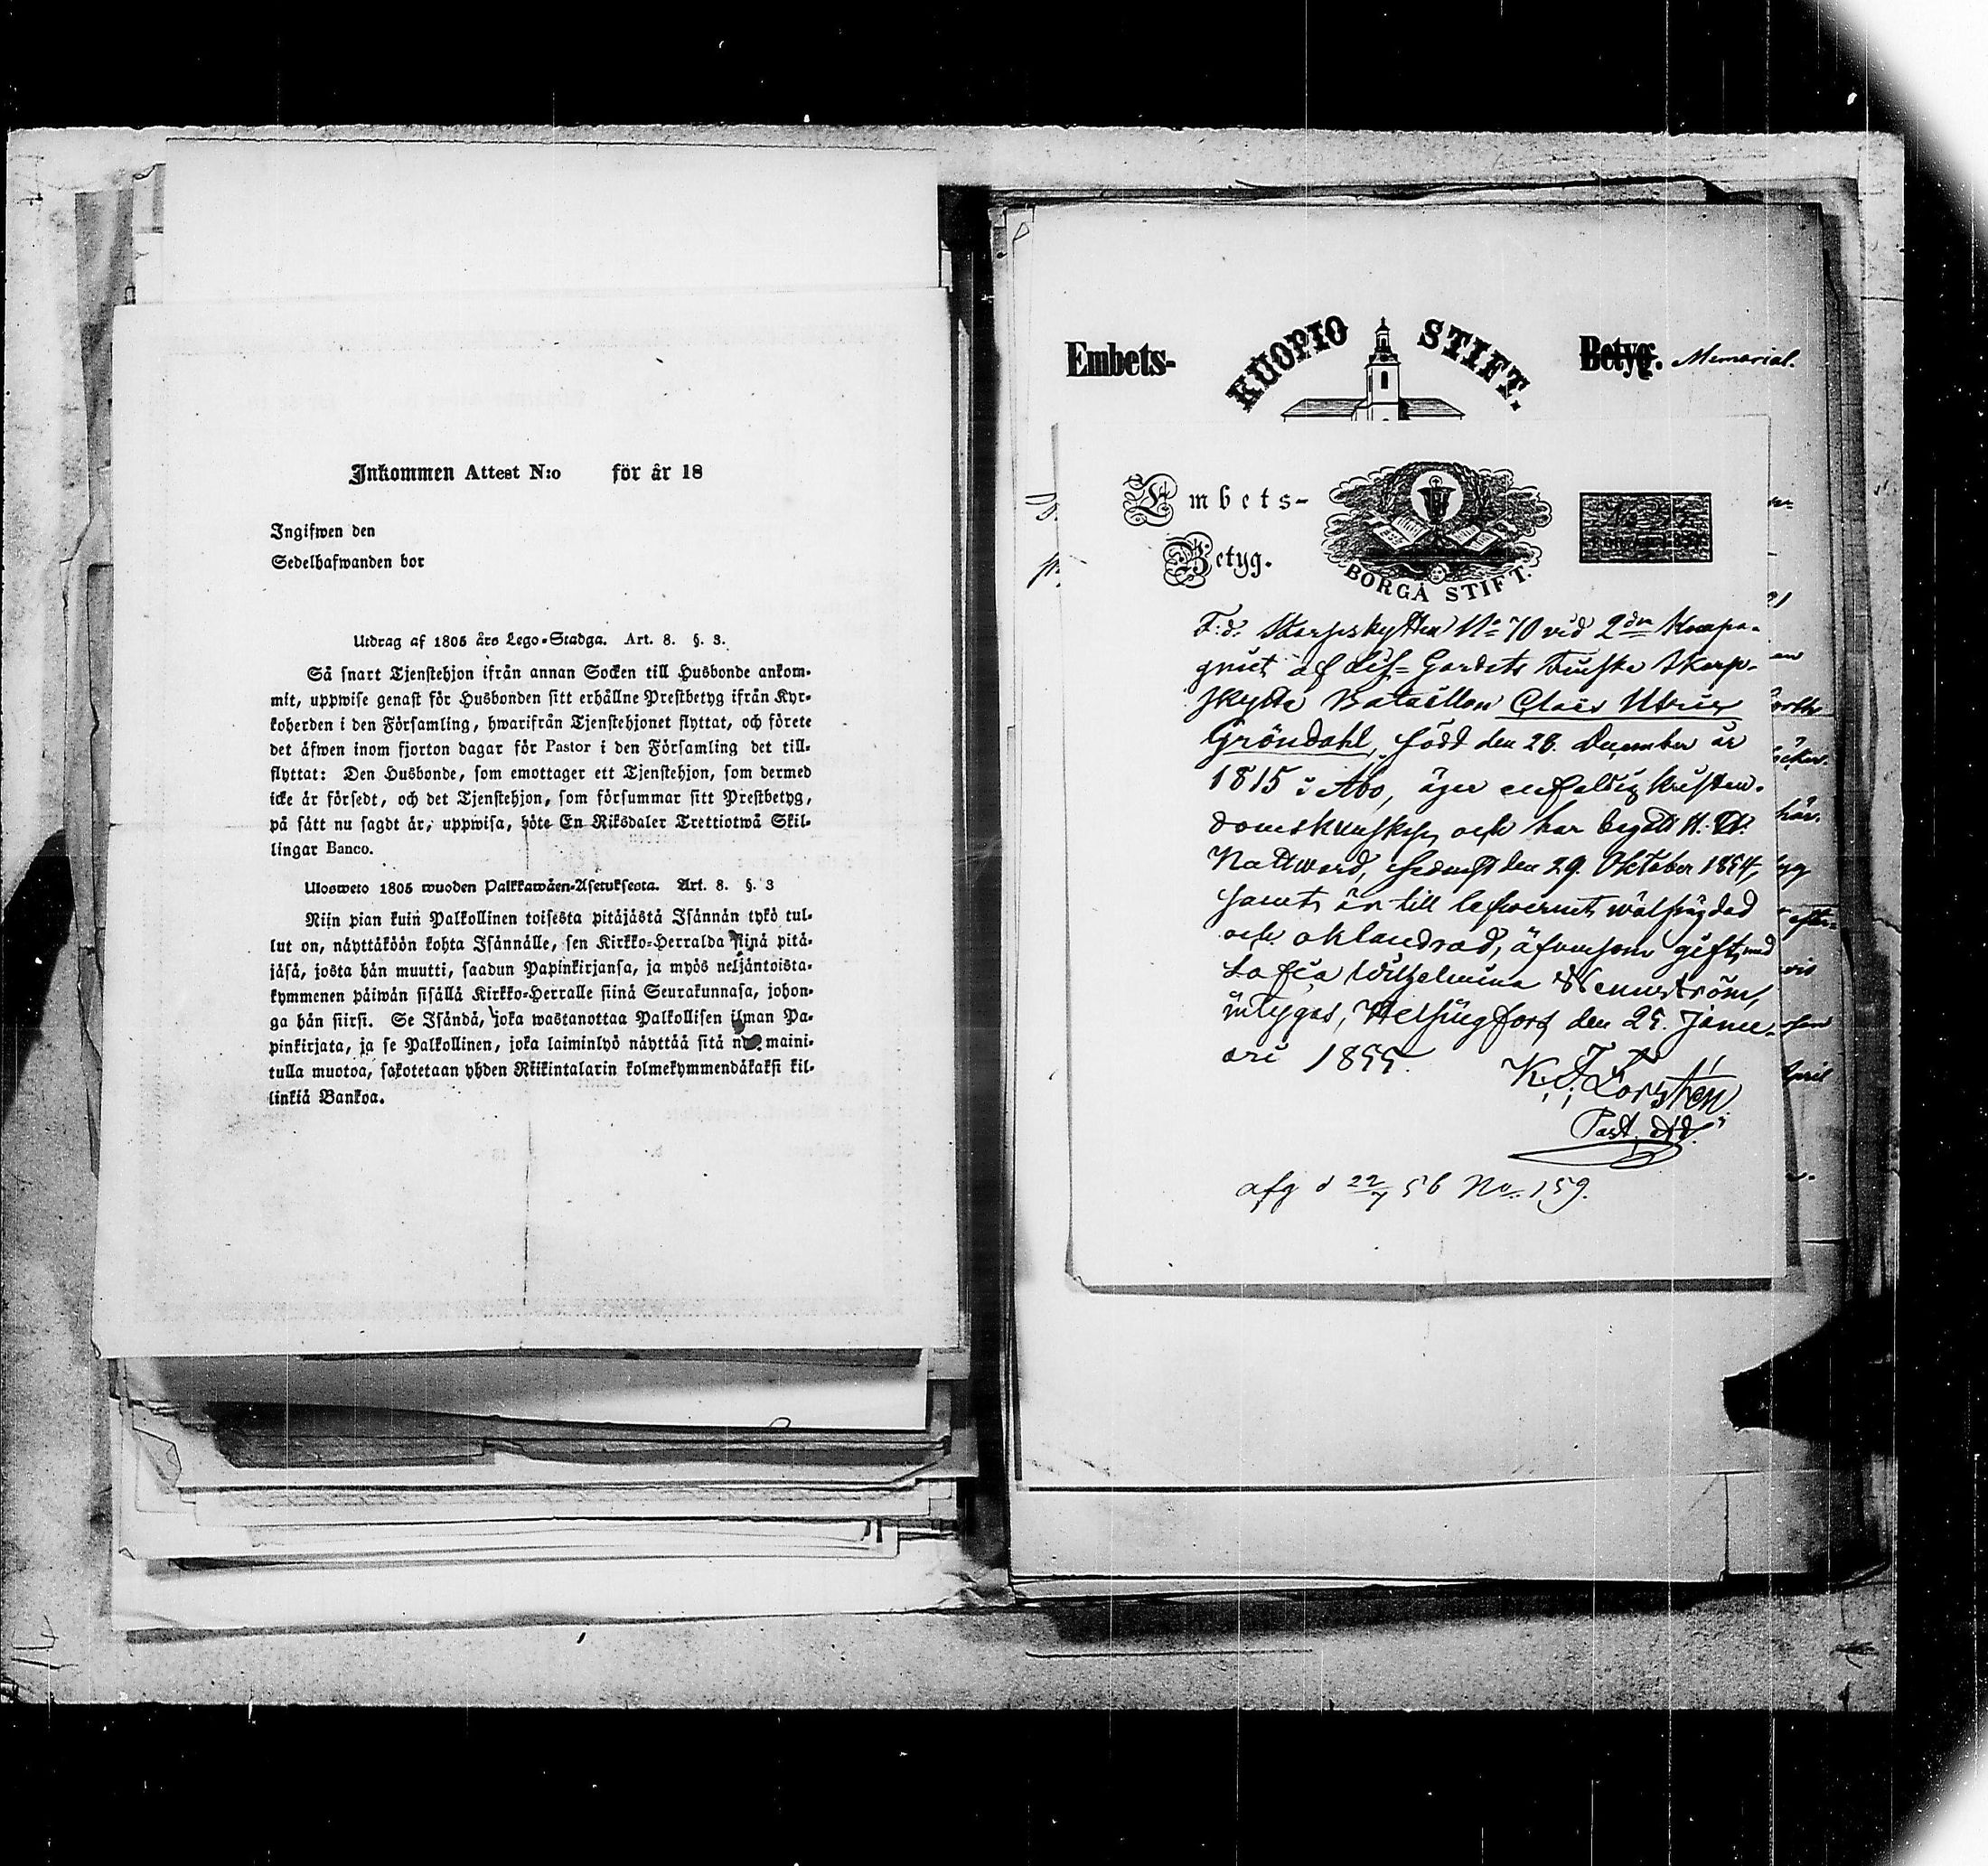 Inkommen Attest N:o för år 18
Ingifwen den
Sedelhafwanden bor
Utdrag af 1805 års Lego-Stadga. Art. 8. §. 3.
Så snart Tjenstehjon ifrån annan Socken till Husbonde ankom-
mit, uppwise genast för Husbonden sitt erhållne Prestbetyg ifrån Kyr-
koherden i den Församling, hwarifrån Tjenstehjonet flyttat, och förete
det äfwen inom fjorton dagar för Pastor i den Församling det till-
flyttat: Den Husbonde, som emottager ett Tjenstehjon, som dermed
icke är försedt, och det Tjenstehjon, som försummar sitt Prestbetyg,
på sätt nu sagdt är, uppwisa, böte En Riksdaler Trettiotwå Skil-
lingar Banco.
Ulosweto 1805 wuoden Palkkawäen-Asetuksesta. Art. 8. §. 3
Niin pian kuin Palkollinen toisesta pitäjästä Isännän tykö tul-
lut on, näyttäköön kohta Isännälle, sen Kirkko-Herralda siinä pitä-
jäsä, josta hän muutti, saadun Papinkirjansa, ja myös neljäntoista-
kymmenen päiwän sisällä Kirkko-Herralle siinä Seurakunnasa, johon-
ga hän siirsi. Se Isändä, joka wastanottaa Palkollisen ilman Pa-
pinkirjata, ja se Palkollinen, joka laiminlyö näyttää sitä nyt maini-
tulla muotoa, sakotetaan yhden Riikintalarin kolmekymmendäkaksi kil-
linkiä Bankoa.
Embets- KUOPIO STIFT. Betyg. Memorial.
Embets-
Betyg.
BORGÅ STIFT.
F:d. Skarpskytten No 70 vid 2dra Kompa-
gniet af Lif-Gardets Finska Skarp-
skytte Bataillon Claës Utrius
Gröndahl, född den 28. December år
1815 i Åbo, äger enfaldig kristen-
domskunskap och har begått H. H.
Nattward, sednast den 29. Oktober 1854,
samt är till lefvernet wälfrägdad
och oklandrad, äfvensom gift med
Sofia Wilhelmina Wennström,
intygas, Helsingfors den 25. Janu-
ari 1855.
K. F. Forstén
Past. Adj.
afg d 22/7 56 No 159.